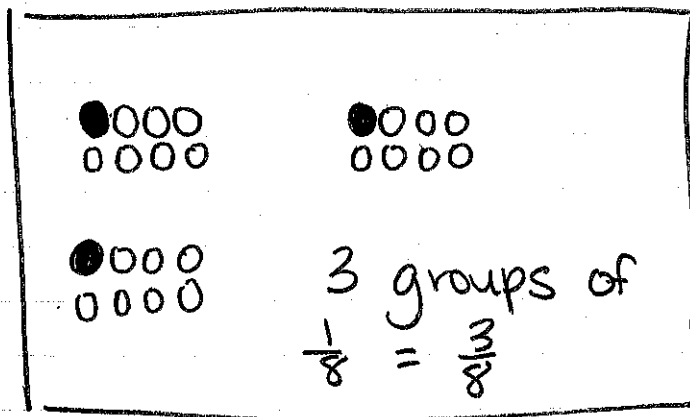 3 groups of
1/8 = 3/8